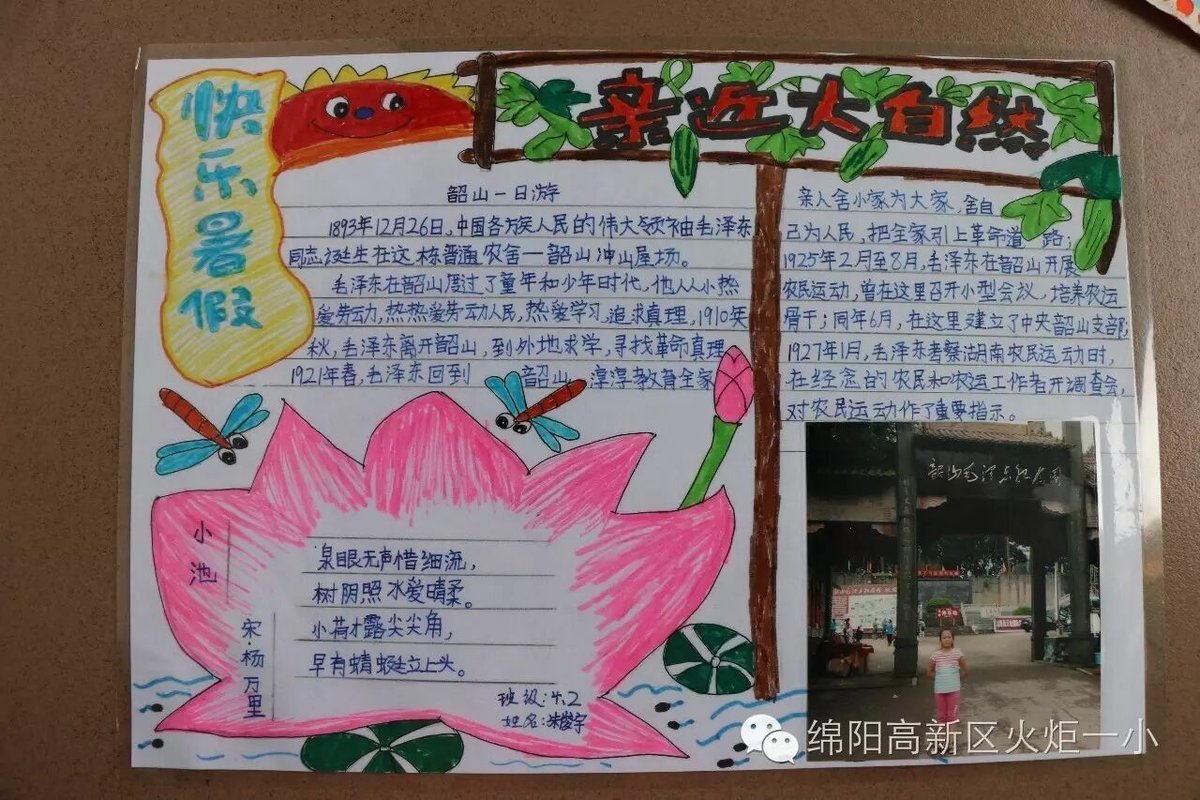 快乐暑假
亲近大自然
韶山一日游
1893年12月26日,中国各族人民的伟大领袖毛泽东
同志诞生在这栋普通农舍—韶山冲山屋场。
毛泽东在韶山度过了童年和少年时代,他从小热
爱劳动,热热爱劳动人民,热爱学习,追求真理,1910年
秋,毛泽东离开韶山,到外地求学,寻找革命真理
1921年春,毛泽东回到 韶山,淳淳教育全家
亲人舍小家为大家,舍自
己为人民,把全家引上革命道路;
1925年2月至8月,毛泽东在韶山开展
农民运动,曾在这里召开小型会议,培养农运
骨干;同年6月,在这里建立了中央韶山支部;
1927年1月,毛泽东考察湖南农民运动时,
在经念的农民和农运工作者开调查会,
对农民运动作了重要指示。
小池
宋·杨万里
泉眼无声惜细流,
树阴照水爱晴柔。
小荷才露尖尖角,
早有蜻蜓立上头。
班级:六.2
姓名:朱俊宇
绵阳高新区火炬一小